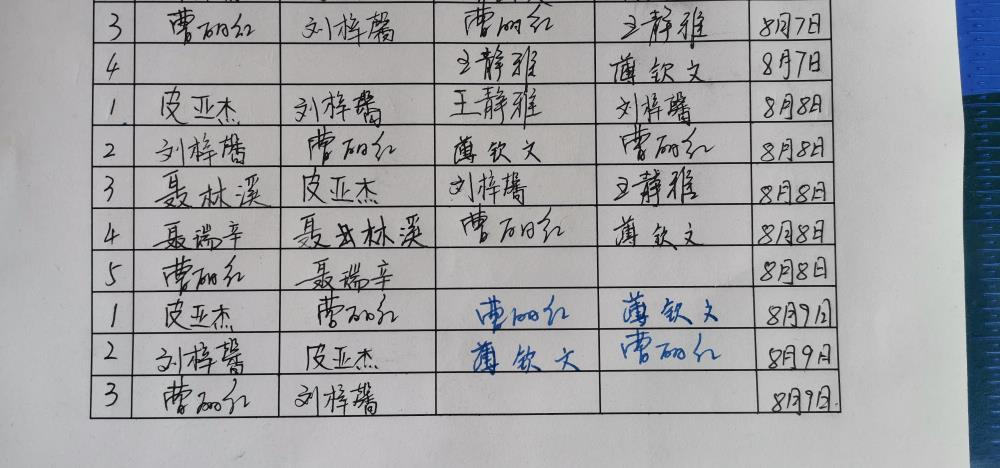 3 曹丽红 刘梓馨 曹丽红 王静雅 8月7日
4 王静雅 薄钦文 8月7日
1 皮亚杰 刘梓馨 王静雅 刘梓馨 8月8日
2 刘梓馨 曹丽红 薄钦文 曹丽红 8月8日
3 聂林溪 皮亚杰 刘梓馨 王静雅 8月8日
4 聂瑞辛 聂林溪 曹丽红 薄钦文 8月8日
5 曹丽红 聂瑞辛 8月8日
1 皮亚杰 曹丽红 曹丽红 薄钦文 8月9日
2 刘梓馨 皮亚杰 薄钦文 曹丽红 8月9日
3 曹丽红 刘梓馨 8月9日.